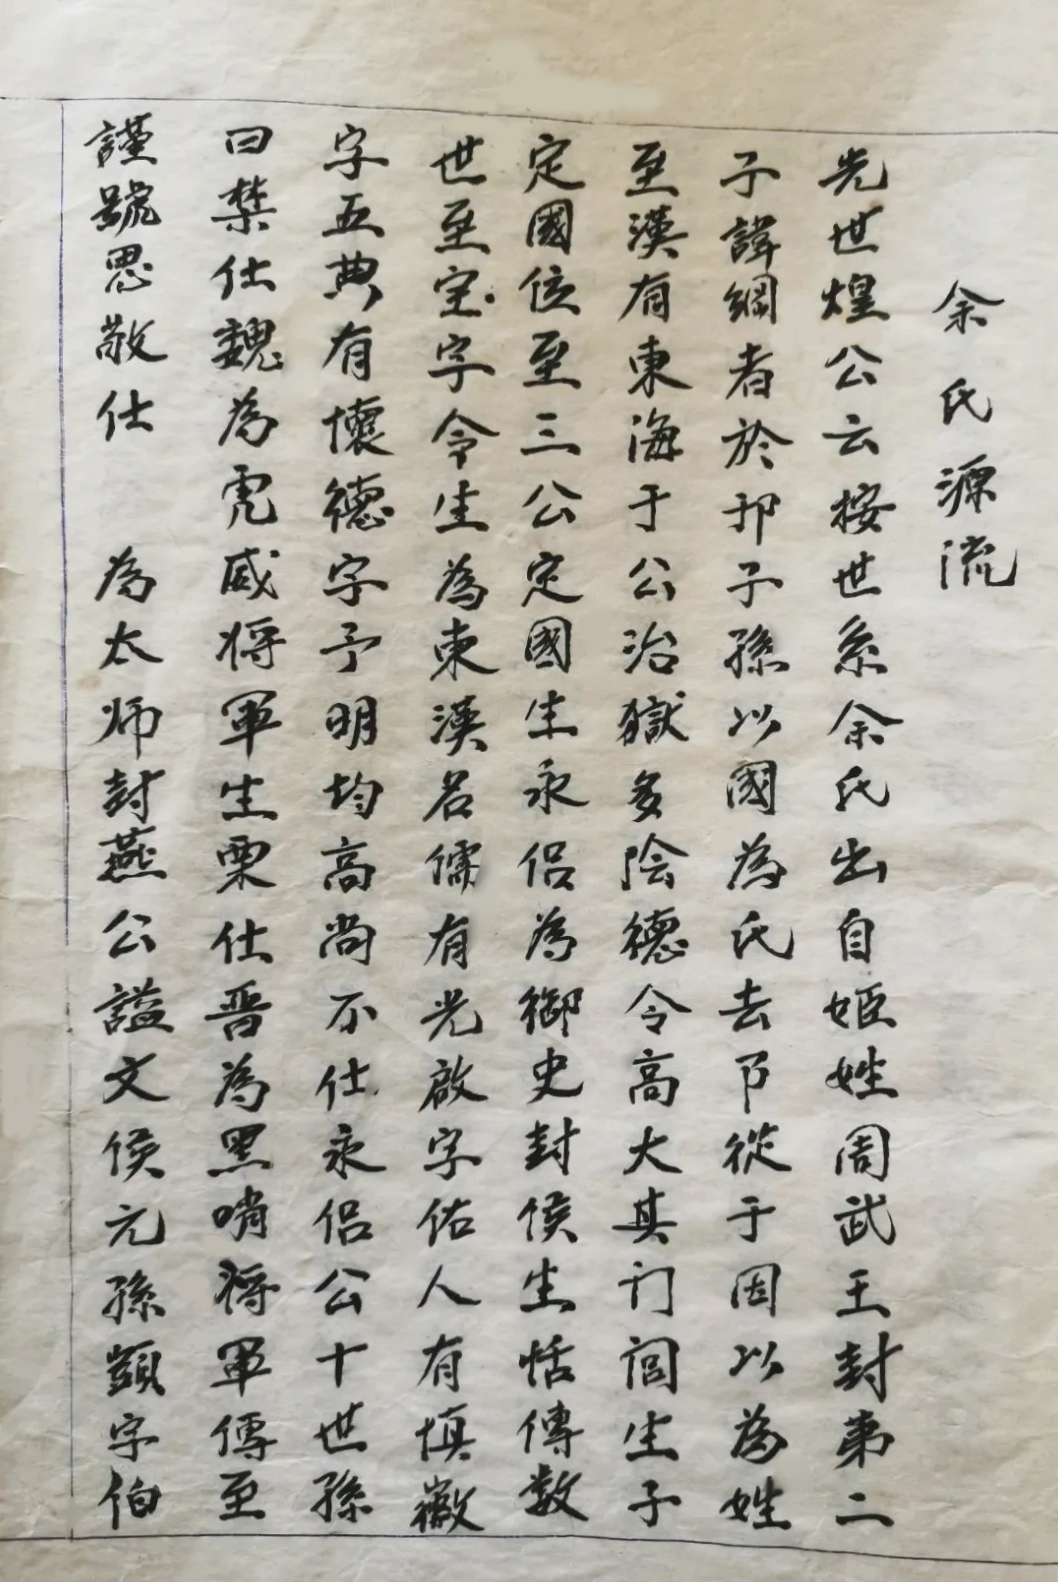 余氏源流
光世煌公云按世系余氏出自姬姓周武王封第二
子諱綱者於邘子孫以國為氏去卩從于因以為姓
至漢有東海于公治獄多陰德令高大其门闾生子
定國位至三公定國生永侣為御史封侯生恬傳数
世至定字令生為東漢名儒有光啟字佑人有慎徽
字五典有懷德字予明均高尚不仕永侣公十世孫
曰禁仕魏為虎威将軍生栗仕晋為黑哨将軍傳至
謹號思敬仕 為太师封燕公諡文侯元孫顗字伯